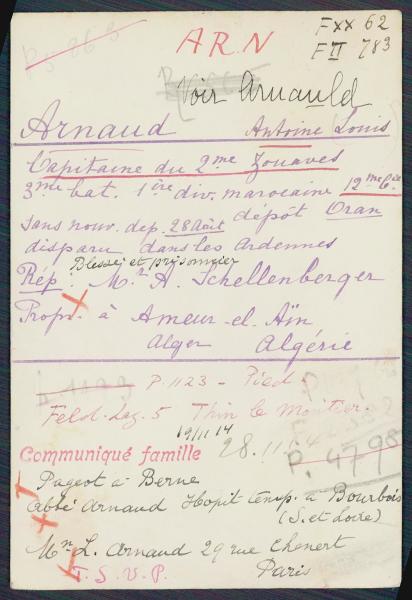 ARN
F xx 62
F II 783
Voir Arnauld
Arnaud Antoine Louis
Capitaine du 2me Zouaves
3me bat. 1ère div. marocaine 12me Cie
sans nouv. dep. 28 Août dépôt Oran
disparu dans les Ardennes
Blessé et prisonnier
Rép. Mr A. Schellenberger
Propr. à Ameur-el-Aïn
Alger Algérie
P. 1123 - Pied.
Feld. Laz. 5 Thin le Moutier
19/11 14
Communiqué famille 28.11.
P. 4798
Pageot à Berne
Abbé Arnaud Hopit temp. à Bourbois
(S. et Loire)
Mn L. Arnaud 29 rue Chenert
Paris
T. S. V. P.